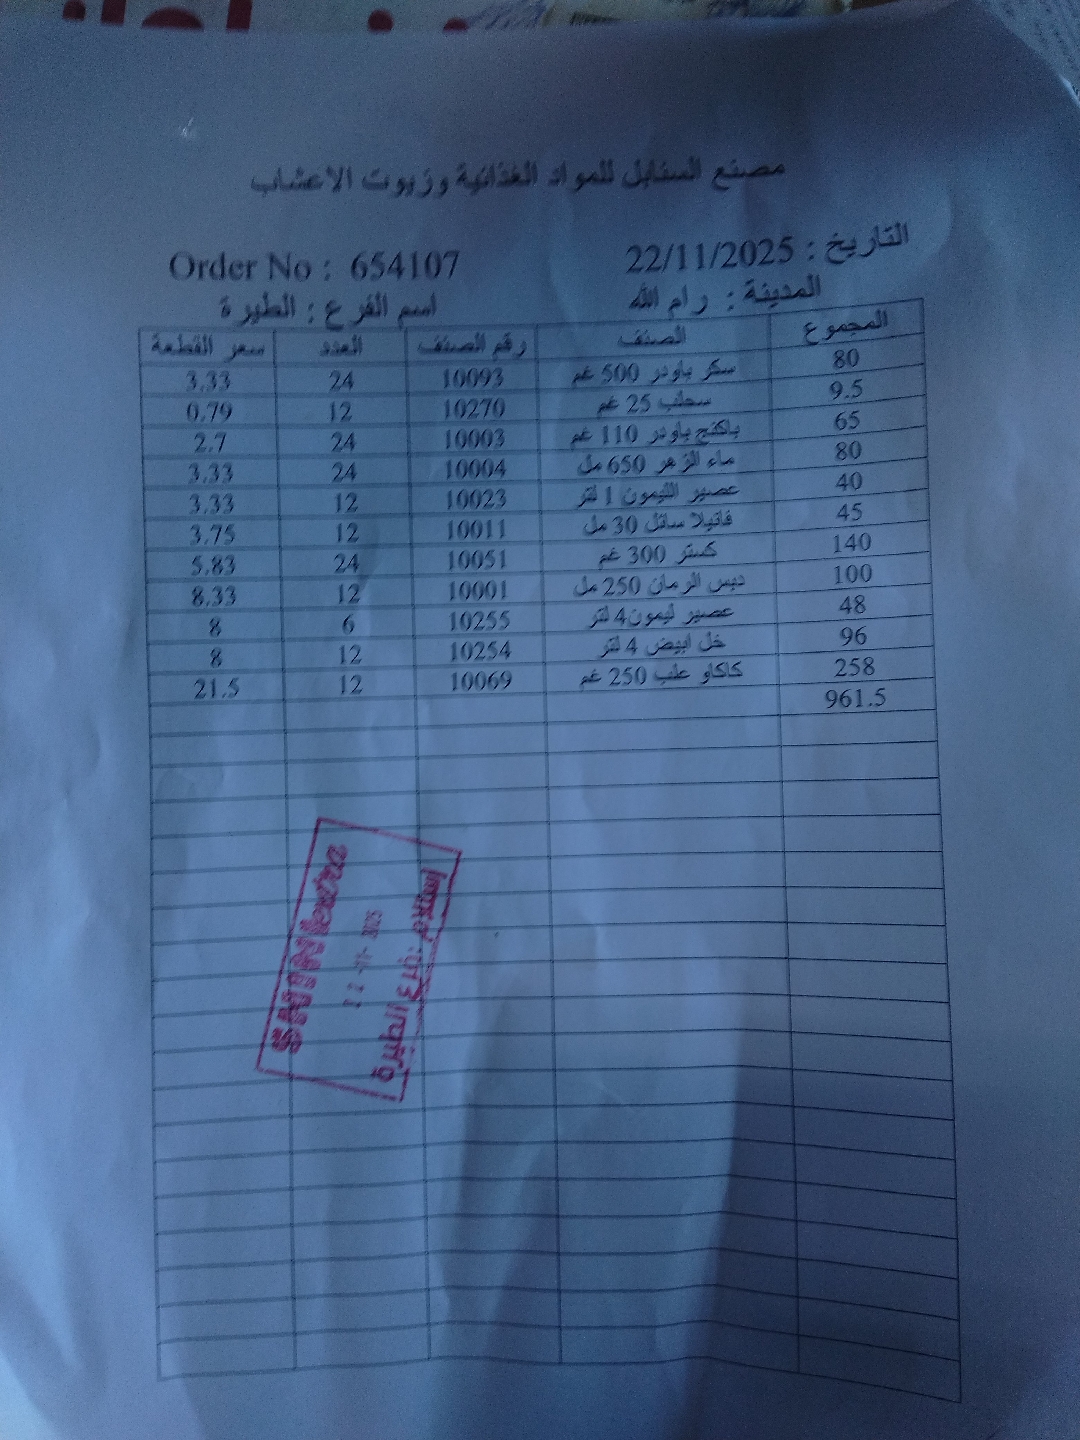 مصنع السنابل للمواد الغذائية وزيوت الاعشاب
التاريخ : 22/11/2025 Order No : 654107
المدينة : رام الله اسم الفرع : الطيرة
المجموع الصنف رقم الصنف العدد سعر القطعة
80 سكر باودر 500 غم 10093 24 3.33
9.5 سحلب 25 غم 10270 12 0.79
65 باكنج باودر 110 غم 10003 24 2.7
80 ماء الزهر 650 مل 10004 24 3.33
40 عصير الليمون 1 لتر 10023 12 3.33
45 فانيلا سائل 30 مل 10011 12 3.75
140 كستر 300 غم 10051 24 5.83
100 دبس الرمان 250 مل 10001 12 8.33
48 عصير ليمون4 لتر 10255 6 8
96 خل ابيض 4 لتر 10254 12 8
258 كاكاو علب 250 غم 10069 12 21.5
961.5